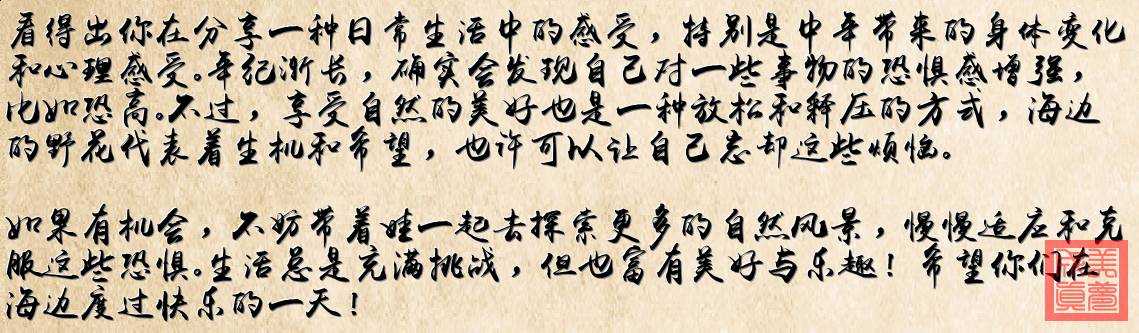 看得出你在分享一种日常生活中的感受，特别是中年带来的身体变化
和心理感受。年纪渐长，确实会发现自己对一些事物的恐惧感增强，
比如恐高。不过，享受自然的美好也是一种放松和释压的方式，海边
的野花代表着生机和希望，也许可以让自己忘却这些烦恼。
如果有机会，不妨带着娃一起去探索更多的自然风景，慢慢适应和克
服这些恐惧。生活总是充满挑战，但也富有美好与乐趣！希望你们在
海边度过快乐的一天！
美梦
成真